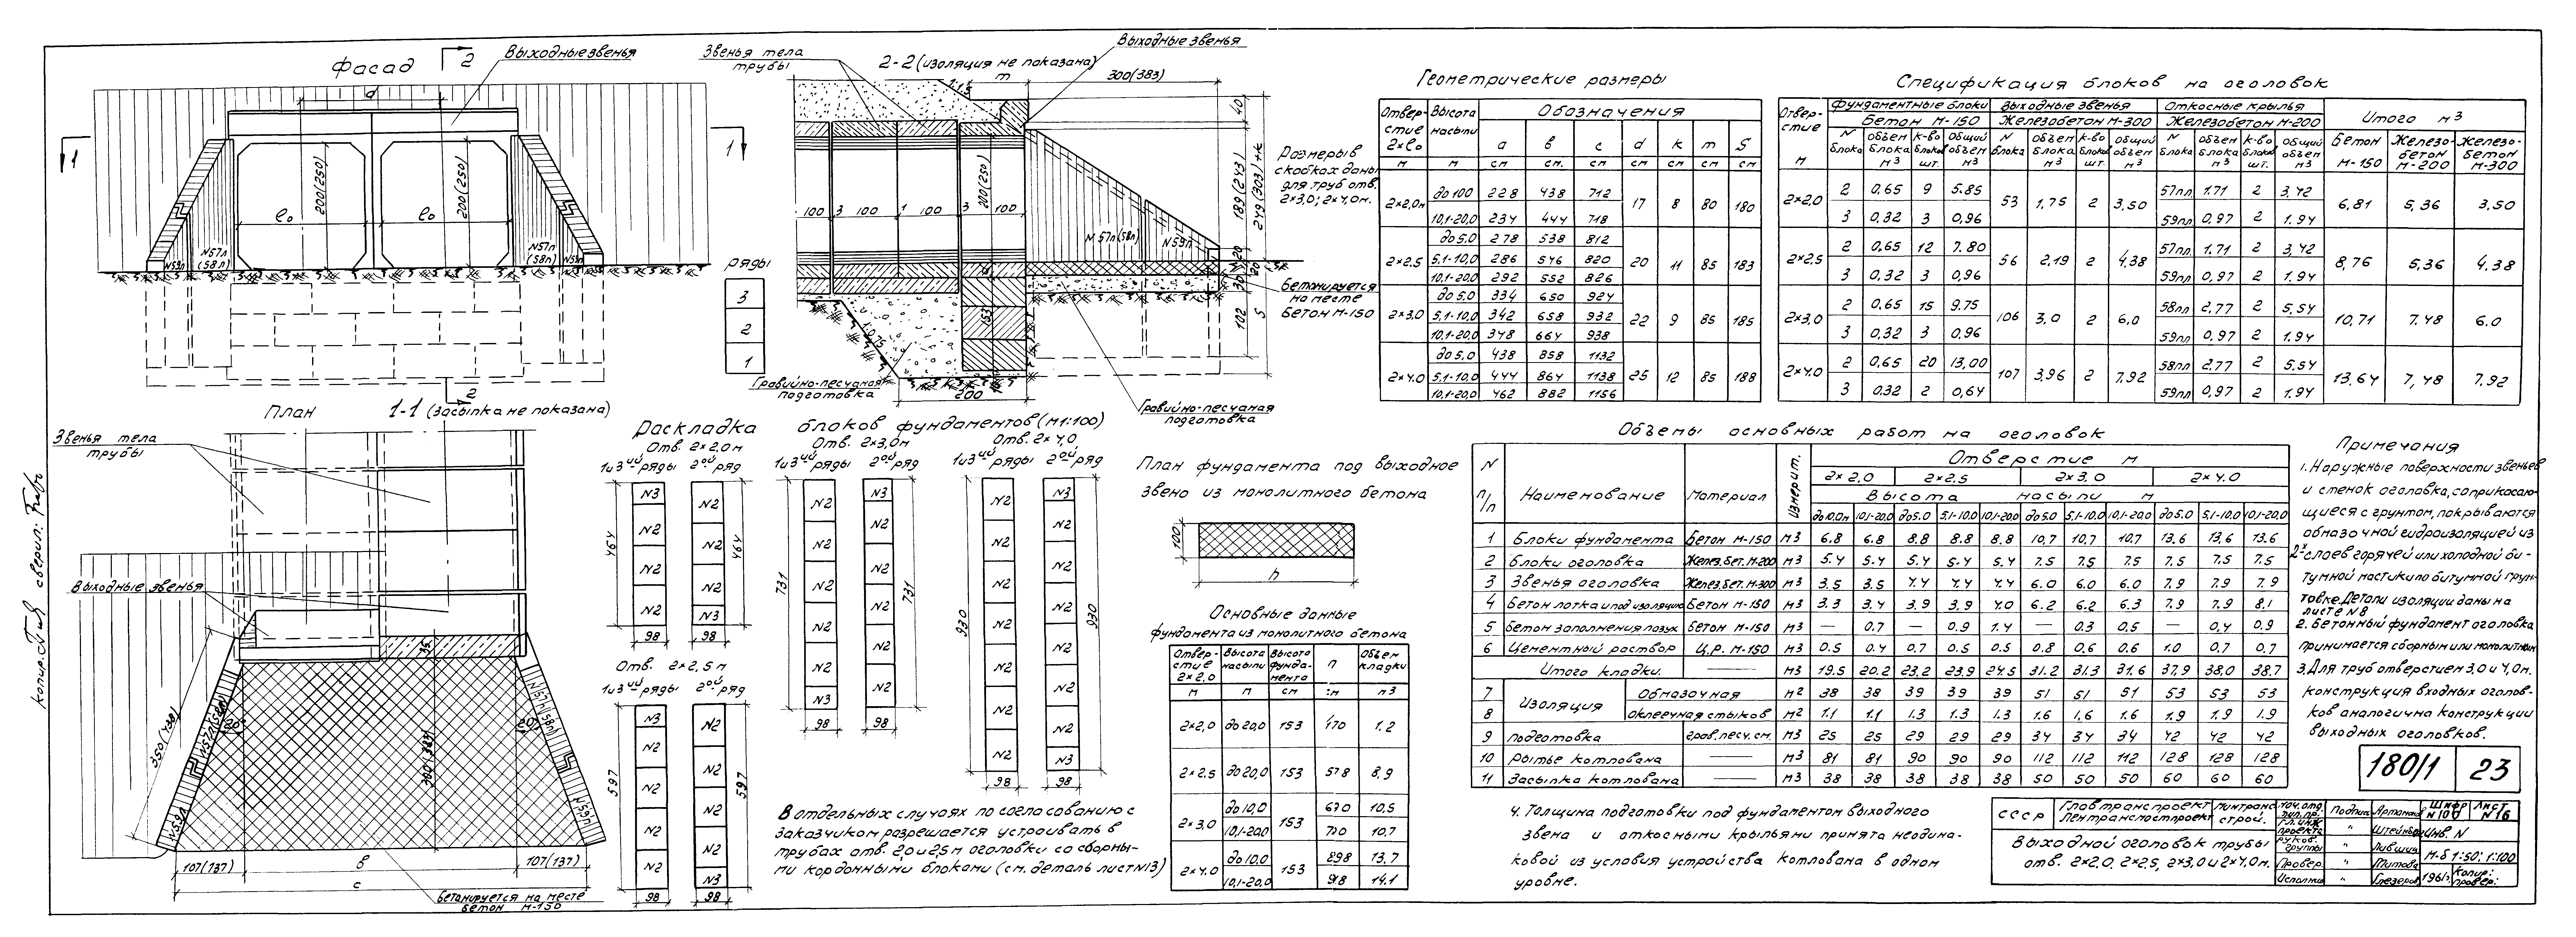 Фасад
2
Выходные звенья
а
1
1
200(250)
200(250)
ℓо
ℓо
N57л
(58л)
N59л
N57л
(58л)
N59л
ряды
3
2
1
2
Звенья тела
трубы
2-2 (изоляция не показана)
Выходные звенья
m
300(383)
1:1,5
40
100 3 100 1 100 3 100
200(250)
189(243)
249(303)
N57л(58л)
N59л
20
30
102
S
153
200
Размеры в
скобках даны
для труб отв.
2×3,0; 2×4,0м.
Бетонируется
на месте
Бетон М-150
Гравийно-песчаная
подготовка
Гравийно-песчаная
подготовка
План
1-1 (Засыпка не показана)
Звенья тела
трубы
Выходные звенья
350(438)
N57л(58л)
20°
N59л
300(383)
35
N57л(58л)
20°
N59л
107(137) в 107(137)
с
Бетонируется на месте
бетон М-150
Раскладка блоков фундаментов (М1:100)
Отв. 2×2,0м
1и3ий ряды 2ой ряд
N3
N2
N2
N2
N2
N2
N2
N2
N2
N3
464
464
98 98
Отв. 2×2,5м
1и3ий ряды 2ой ряд
N3
N2
N2
N2
N2
N2
N2
N2
N2
N3
597
597
98 98
Отв. 2×3,0м
1и3ий ряды 2ой ряд
N2
N2
N2
N2
N2
N3
N3
N2
N2
N2
N2
N2
731
731
98 98
Отв. 2×4,0
1и3ий ряды 2ой ряд
N2
N2
N2
N2
N2
N2
N2
N3
N2
N2
N2
N2
N2
N2
N3
930
930
98 98
В отдельных случаях по согласованию с
заказчиком разрешается устраивать в
трубах отв. 2,0 и 2,5м оголовки со сборны-
ми кордонными блоками (см. деталь лист N13)
План фундамента под выходное
звено из монолитного бетона
100
n
Основные данные
фундамента из монолитного бетона
Отвер-стие 2×2,0 Высота насыпи Высота фунда-мента n Объем кладки
м м см см м3
2×2,0 до 20,0 153 470 7.2
2×2.5 до 20,0 153 578 8,9
2×3,0 до 10,0 153 670 10,5
10,1-20,0 10,7
2×4.0 до 10,0 153 898 13,7
10,1-20,0 918 14.1
Геометрические размеры
Отвер-стие 2×ℓо Высота насыпи Обозначения
а в с d к m S
м м см см. см см см см см
2×2,0м до 100 228 438 712 17 8 80 180
10,1-20,0 234 444 718
2×2,5 до 5.0 278 538 812 20 11 85 183
5.1-10,0 286 546 820
10,1-20,0 292 552 826
2×3.0 до 5.0 334 650 924 22 9 85 185
5,1-10,0 342 658 932
10,1-20,0 348 664 938
2×4.0 до 5.0 438 858 1132 25 12 85 188
5,1-10,0 444 864 1138
10,1-20,0 462 882 1156
Спецификация блоков на оголовок
Отвер-стие Фундаментные блоки Выходные звенья Откосные крылья Итого м3
Бетон М-150 Железобетон М-300 Железобетон М-200
м N блока объем блока м3 к-во шт. общий объем м3 N блока объем блока м3 к-во блоков шт. общий объем м3 N блока объем блока м3 к-во блоков шт. общий объем м3 Бетон М-150 Железо-бетон М-200 Железо-бетон М-300
2×2,0 2 0,65 9 5.85 53 1,75 2 3,50 57пл 1.71 2 3,42 6,81 5,36 3,50
3 0,32 3 0,96 59пл 0,97 2 1.94
2×2,5 2 0,65 12 7.80 56 2,19 2 4.38 57пл 1.71 2 3,42 8,76 5,36 4.38
3 0,32 3 0,96 59пл 0,97 2 1.94
2×3,0 2 0,65 15 9.75 106 3,0 2 6,0 58пл 2,77 2 5,54 10,71 7.48 6.0
3 0,32 3 0,96 59пл 0,97 2 1.94
2×4.0 2 0,65 20 13,00 107 3,96 2 7,92 58пл 2,77 2 5.54 13,64 7,48 7.92
3 0.32 2 0,64 59пл 0,97 2 1.94
Объемы основных работ на оголовок
N п/п Наименование Материал Измерит. Отверстие м
2×2,0 2×2,5 2×3,0 2×4,0
Высота насыпи м
до 10,0м 10,1-20,0 до 5.0 5,1-10,0 10,1-20,0 до 5.0 5,1-10,0 10,1-20,0 до 5.0 5,1-10,0 10,1-20,0
1 Блоки фундамента Бетон М-150 м3 6.8 6.8 8.8 8.8 8.8 10,7 10,7 10,7 13.6 13.6 13.6
2 Блоки оголовка Желез.бет. М-200 м3 5.4 5.4 5.4 5.4 5.4 7.5 7.5 7.5 7.5 7.5 7.5
3 Звенья оголовка Желез.бет. М-300 м3 3.5 3,5 4.4 4.4 4.4 6.0 6.0 6.0 7.9 7.9 7.9
4 Бетон лотка и под изоляцию Бетон М-150 м3 3.3 3.4 3.9 3.9 4.0 6.2 6.2 6.3 7.9 7.9 8.1
5 Бетон заполнения пазух Бетон М-150 м3 — 0.7 — 0.9 1.4 — 0.3 0,5 — 0,4 0.9
6 Цементный раствор Ц.Р. М-150 м3 0.5 0.4 0.7 0.5 0.5 0.8 0.6 0.6 1.0 0.7 0.7
Итого кладки. — м3 19.5 20.2 23.2 23.9 24.5 31.2 31.3 31.6 37.9 38.0 38.7
7 Изоляция Обмазочная м2 38 38 39 39 39 51 51 51 53 53 53
8 оклеечная стыков м2 1.1 1.1 1.3 1.3 1.3 1.6 1,6 1.6 1.9 1.9 1.9
9 подготовка грав.песч.см. м3 25 25 29 29 29 34 34 34 42 42 42
10 рытье котлована — м3 81 81 90 90 90 112 112 112 128 128 128
11 Засыпка котлована — м3 38 38 38 38 38 50 50 50 60 60 60
4. Толщина подготовки под фундаментом выходного
звена и откосными крыльями принята неодина-
ковой из условия устройства котлована в одном
уровне.
Примечания
1. Наружные поверхности звеньев
и стенок оголовка, соприкасаю-
щиеся с грунтом, покрываются
обмазочной гидроизоляцией из
2х слоев горячей или холодной би-
тумной мастики по битумной грун-
товке. Детали изоляции даны на
листе N8
2. Бетонный фундамент оголовка
принимается сборным или монолитным
3. Для труб отверстием 3,0 и 4,0м.
конструкция входных оголов-
ков аналогична конструкции
выходных оголовков.
180/1 23
СССР Главтранспроект Лентрансмостпроект Минтрансстрой.
Выходной оголовок трубы
отв. 2×2.0, 2×2,5, 2×3,0 и 2×4,0м.
Нач.отд. Подпис Артамонов
гл. инж. проекта " Штейнберг
руков. группы " Лившиц
Провер. " Митова
Исполнил " Глезеров
Шифр N100 Лист N16
Инв. N
М-б 1:50; 1:100
1961г. Копир: провер:
Копир. сверил: